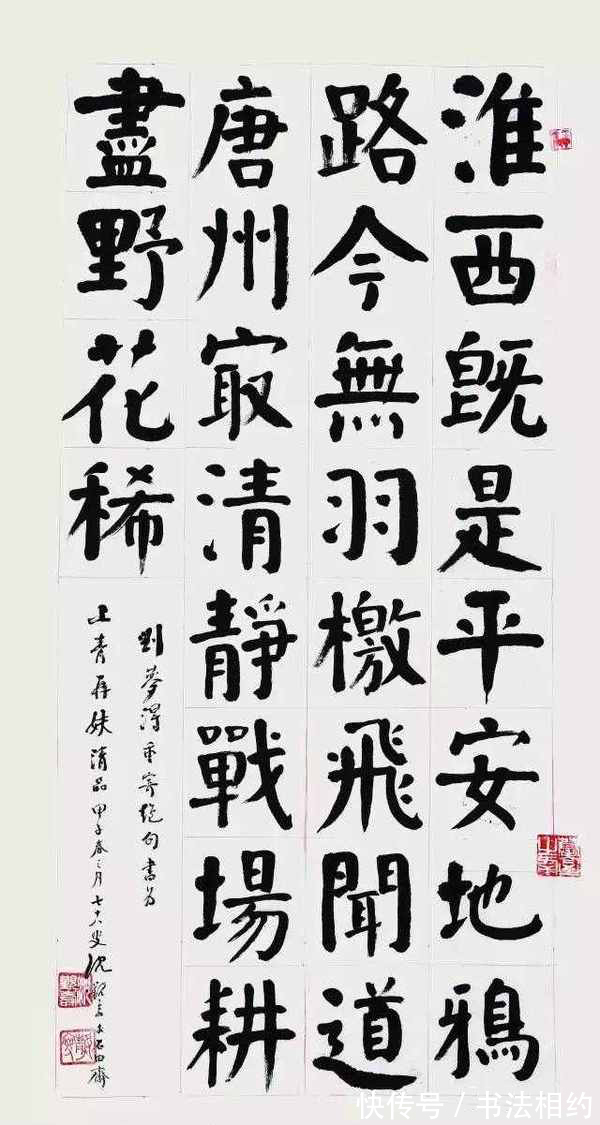 淮西既是平安地鴉
路今無羽檄飛聞道
唐州㝡清靜戰場耕
盡野花稀
劉夢得重寄絕句書為
青存妹清品甲子春三月七十八叟沈觀壽石田齋
快传号 / 书法相约